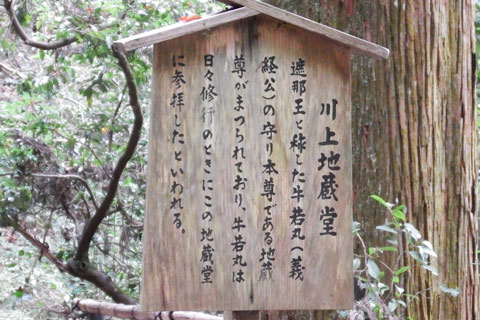 川上地蔵堂
遮那王と称した牛若丸(義
経公)の守り本尊である地蔵
尊がまつられており、牛若丸は
日々修行のときにこの地蔵堂
に参拝したといわれる。